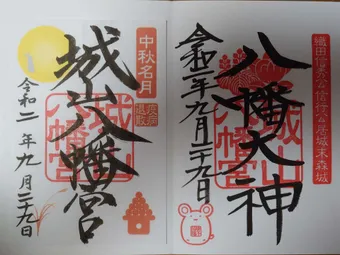 織田信秀公信行公居城末森城
八幡大神
城山八幡宮
令和二年九月二十九日
中秋名月
疫病
退散
城山八幡宮
城山八幡宮
令和二年九月二十九日